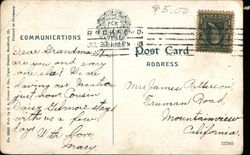 95.00
COMMUNICATIONS
Post Card
ADDRESS
Dear Grandma
are you and every
one else? We are
having our vacation
just now. Cousin
Daisy Gilmor stays
with us a few
days. With love
Mary
Mrs James Patterson,
Truman Road,
Mountainview
California